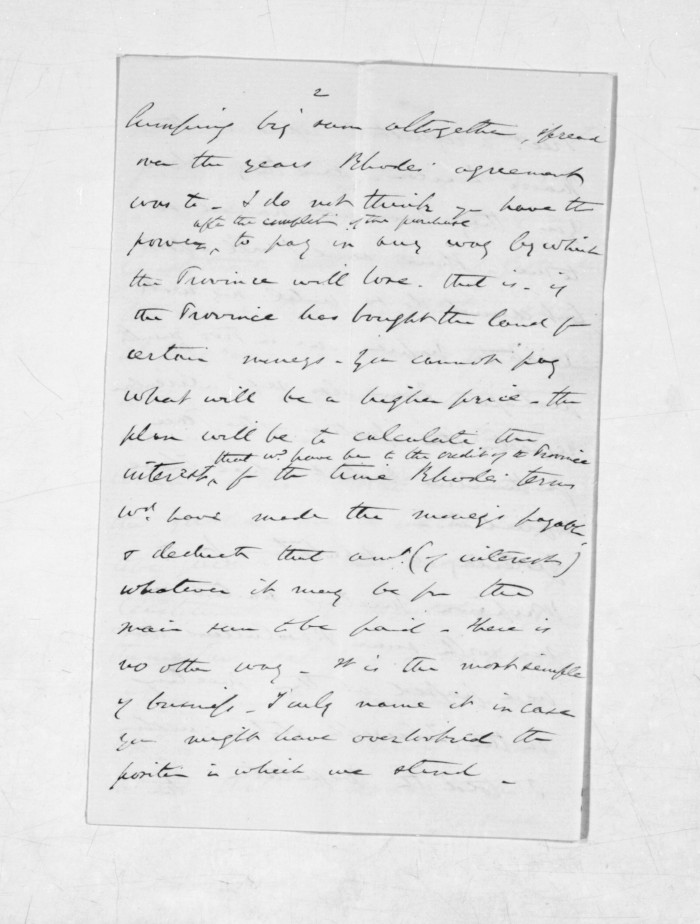 2
lumping big sum altogether, spread
over the years Rhodes' agreement
was to - I do not think you have the
after the completion of the purchase
power, to pay in any way by which
the Province will lose - that is - if
the Province has bought the land for
certain moneys - You cannot pay
what will be a higher price - the
plan will be to calculate the
that wd. have be to the credit of the Province
interest, for the time Rhodes' terms
wd. have made the moneys payable
& deduct that amt. (of interest)
whatever it may be from the
main sum to be paid - there is
no other way - it is the most simple
of business - I only name it in case
you might have overlooked the
position in which we stand -